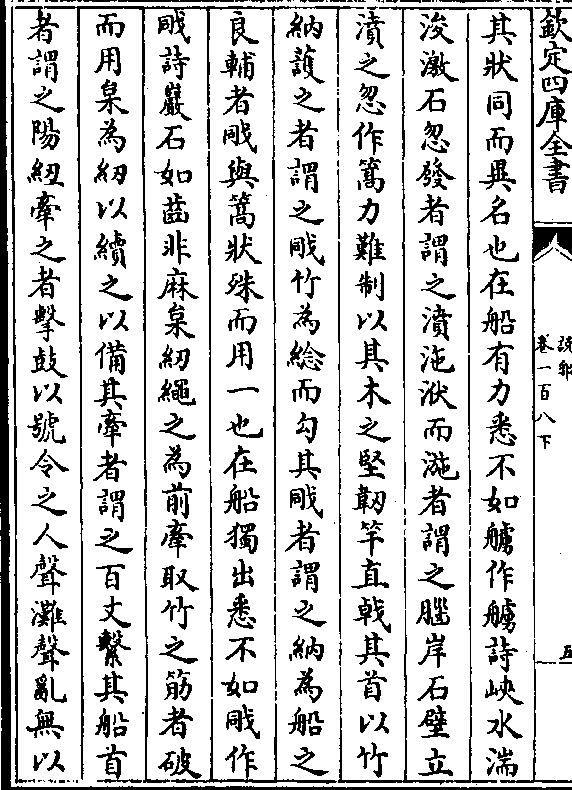 欽定四庫全書
說郛
卷一百八下
五
其狀同而異名也在船有力悉不如艣作艣詩峽水湍
浚激石忽發者謂之濆沲洑而漩者謂之腦岸石壁立
濆之忽作篙力難制以其木之堅韌竿直戟其首以竹
納護之者謂之戙竹為縂而勾其戙者謂之納為船之
良輔者戙與篙狀殊而用一也在船獨出悉不如戙作
戙詩巖石如齒非麻枲紉繩之為前牽取竹之筋者破
而用枲為紉以續之以備其牽者謂之百丈繫其船首
者謂之陽紐牽之者擊鼓以號令之人聲灘聲亂無以